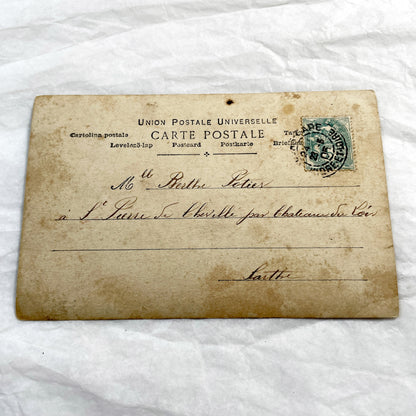 UNION POSTALE UNIVERSELLE
Cartolina postale CARTE POSTALE
Levelező-lap Postcard Postkarte
Mlle Berthe Potier
à St Pierre de Chevillé par Chateau du Loir
Sarthe